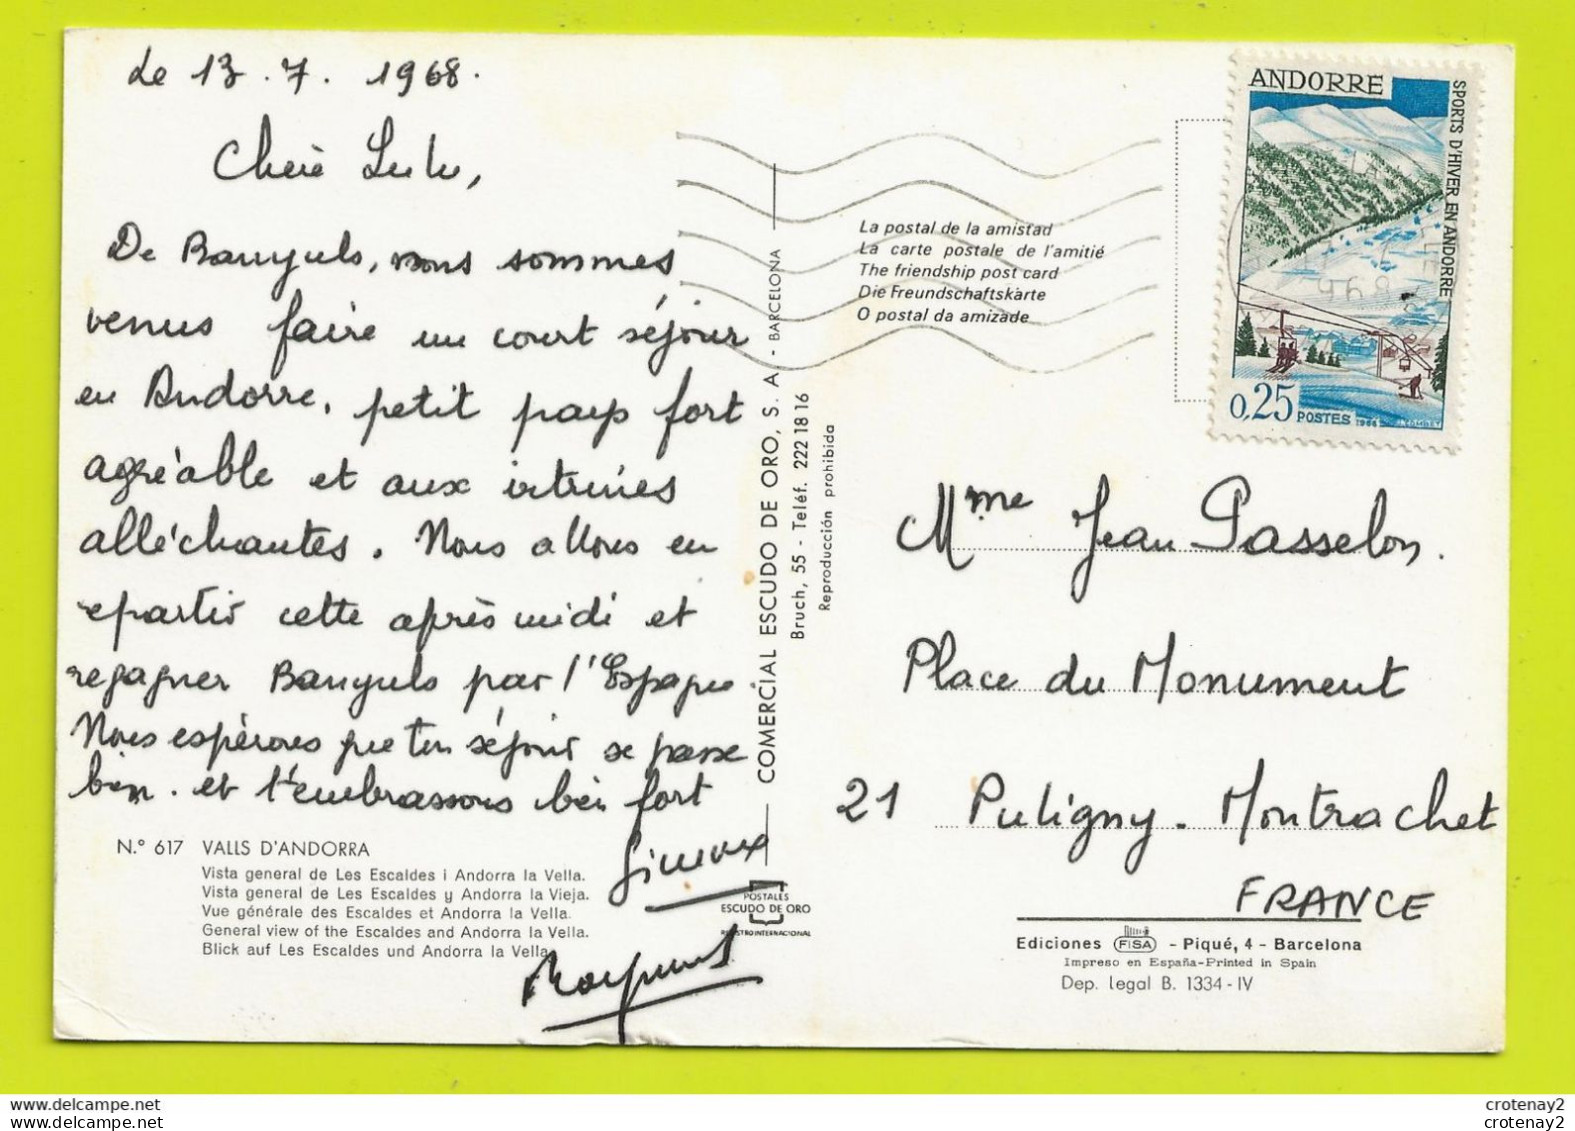 Le 13.7.1968.
Chère Lulu,
De Banyuls, nous sommes
venus faire un court séjour
en Andorre, petit pays fort
agréable et aux vitrines
alléchantes. Nous allons en
repartir cette après midi et
regagner Banyuls par l'Espagne.
Nous espérons que ton séjour se passe
bien. et t'embrassons bien fort
Raymond
N.° 617 VALLS D'ANDORRA
Vista general de Les Escaldes i Andorra la Vella.
Vista general de Les Escaldes y Andorra la Vieja.
Vue générale des Escaldes et Andorra la Vella.
General view of the Escaldes and Andorra la Vella.
Blick auf Les Escaldes und Andorra la Vella.
COMERCIAL ESCUDO DE ORO, S. A. - BARCELONA
Bruch, 55 - Teléf. 222 18 16
Reproducción prohibida
POSTALES
ESCUDO DE ORO
REGISTRO INTERNACIONAL
La postal de la amistad
La carte postale de l'amitié
The friendship post card
Die Freundschaftskarte
O postal da amizade
ANDORRE
SPORTS D'HIVER EN ANDORRE
0,25 POSTES 1966
Mme Jean Passelon.
Place du Monument
21 Puligny-Montrachet
FRANCE
Ediciones FISA - Piqué, 4 - Barcelona
Impreso en España-Printed in Spain
Dep. legal B. 1334-IV
crotenay2
crotenay2
crotenay2
crotenay2